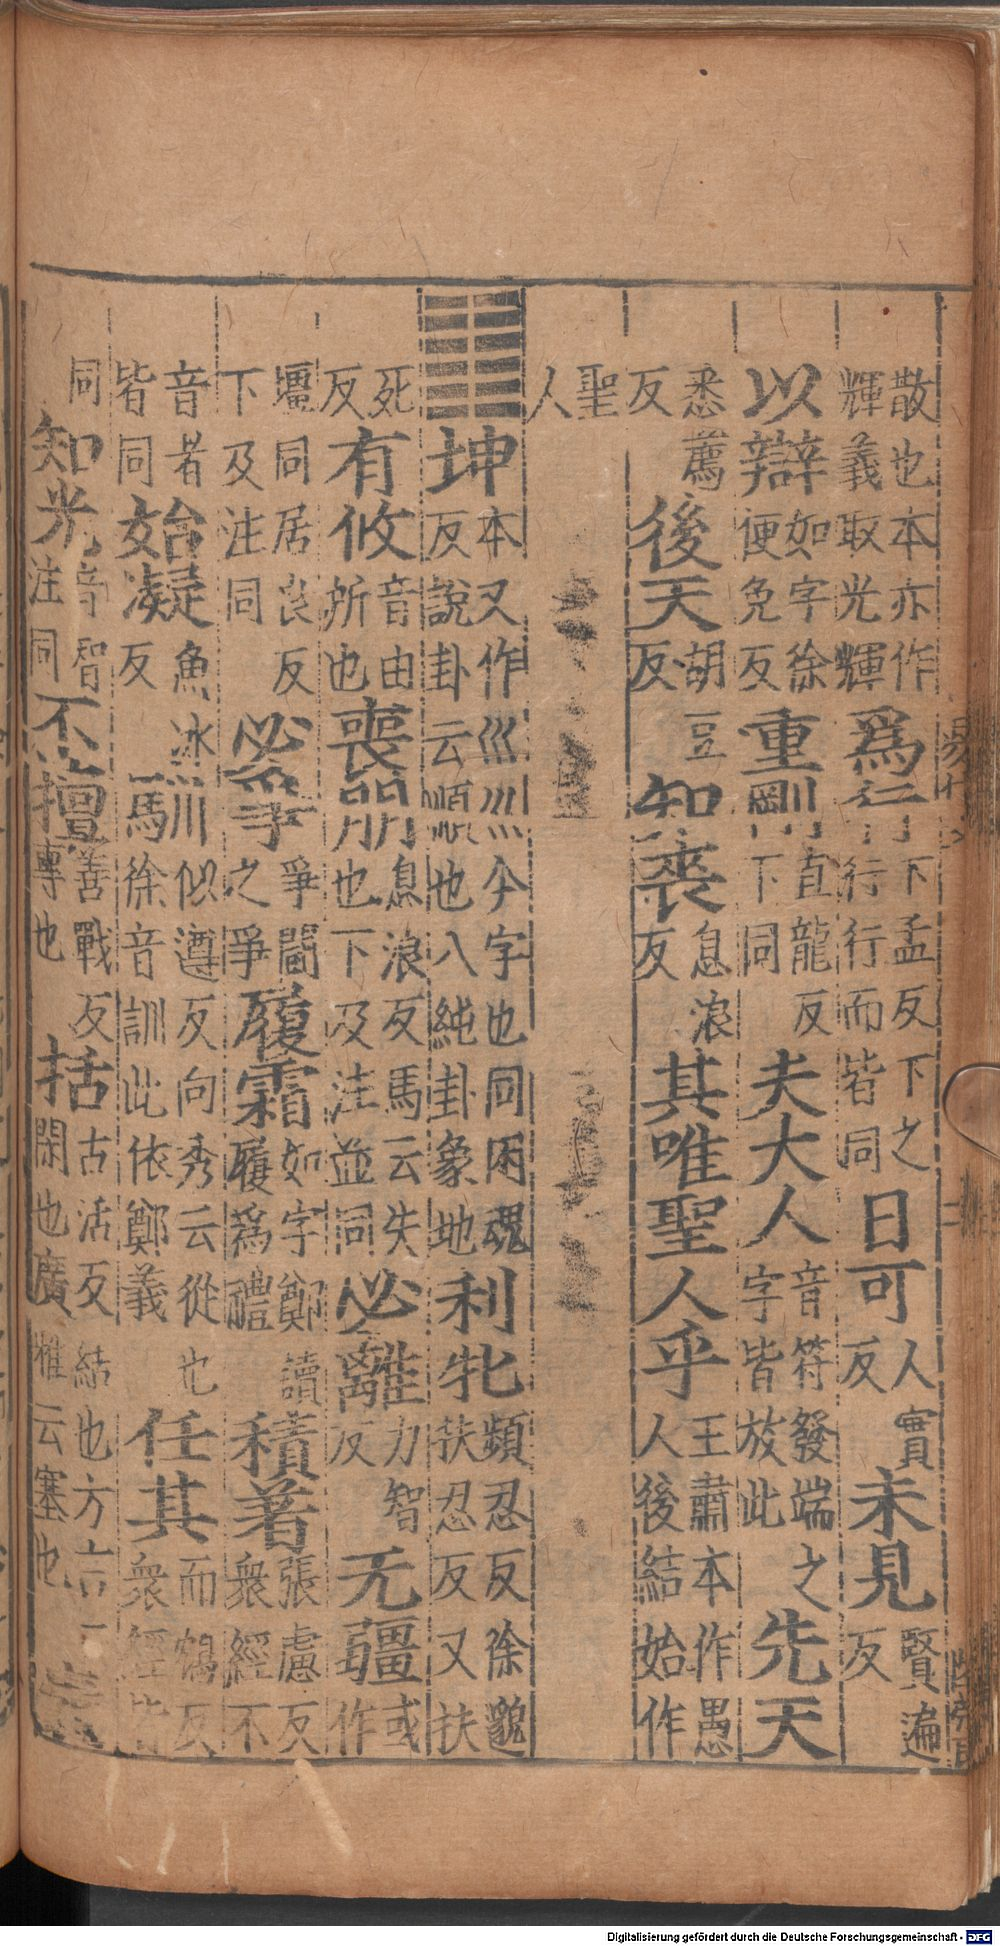 散也本亦作輝義取光輝爲行下孟反下之行行而皆同日可人實反未見賢遍反
以辯如字徐便免反重剛直龍反下同夫大人音符發端之字皆放此先天
悉薦反後天胡豆反知喪息浪反其唯聖人乎王肅本作愚人後結始作
聖人
䷁坤本又作巛巛今字也同困魂反說卦云順也八純卦象地利牝頻忍反徐邈扶忍反又扶
死反有攸音由所也喪朋息浪反馬云失也下及注並同必離力智反无疆或作
壃同居良反下及注同必爭爭鬭之爭履霜如字鄭讀履爲禮積著張慮反衆經不
音者皆同始凝魚冰反馴似遵反向秀云從也馬徐音訓此依鄭義任其而鴆反衆經皆
同知光音智注同不擅善戰反專也括古活反結也方言云閑也廣雅云塞也
Digitalisierung gefördert durch die Deutsche Forschungsgemeinschaft - DFG